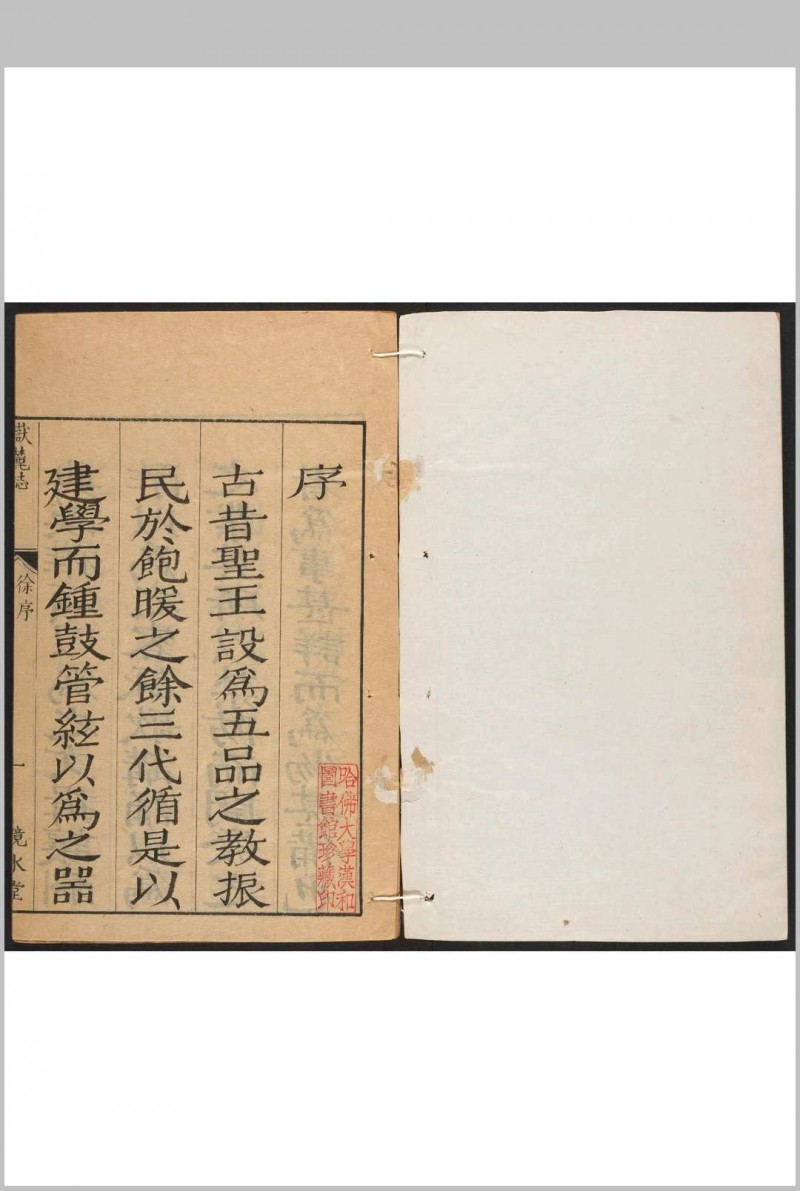 序
古昔聖王設爲五品之教振
民於飽暖之餘三代循是以
建學而鍾鼓管絃以爲之器
嶽麓誌
徐序
一
鏡水堂
哈佛大學漢和
圖書館珍藏印